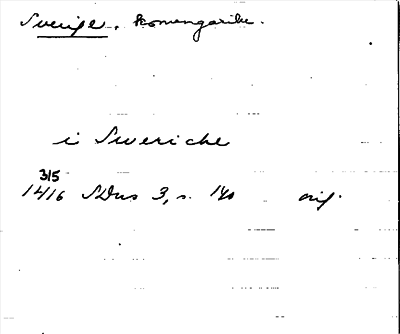 Sverige, konungarike.
i Sweriche
31/5
1416 SDns 3, s. 140 orig.